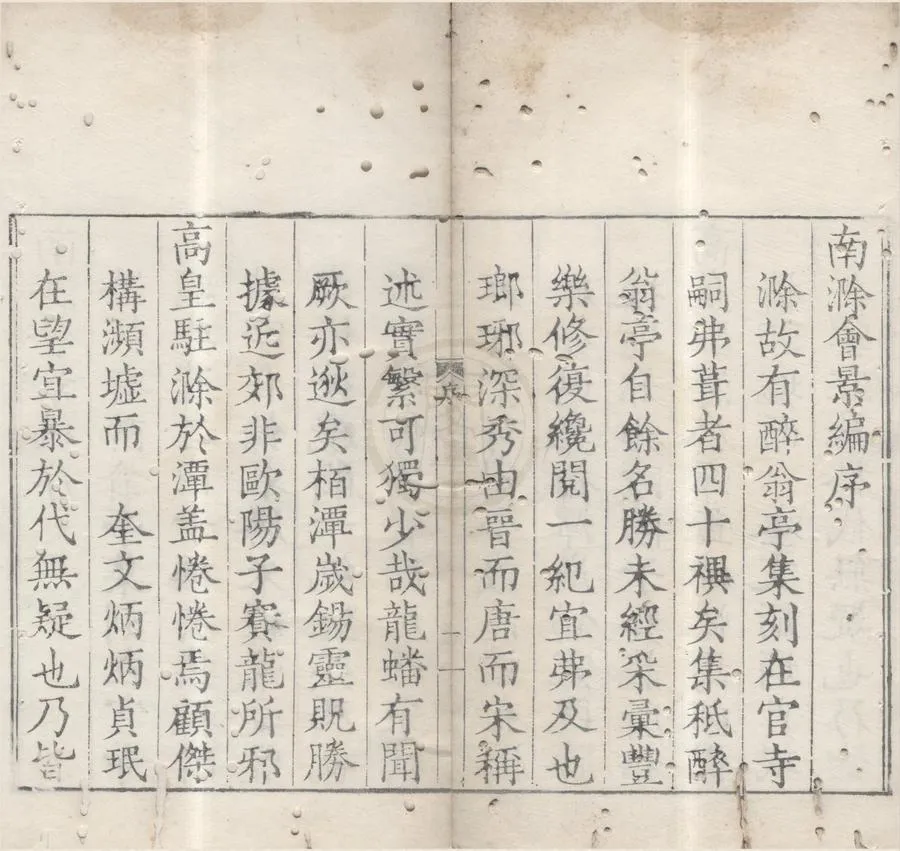 南滁會景編序
滁故有醉翁亭集刻在官寺
嗣弗葺者四十禩矣集秪醉
翁亭自餘名勝未經采彙豐
樂修復纔閱一紀宜弗及也
瑯琊深秀由晉而唐而宋稱
序
一
述實繁可獨少哉龍蟠有聞
厥亦逖矣栢潭歲錫靈貺勝
據近郊非歐陽子賽龍所邪
高皇駐滁於潭盖惓惓焉顧傑
構瀕墟而 奎文炳炳貞珉
在望宜暴於代無疑也乃皆